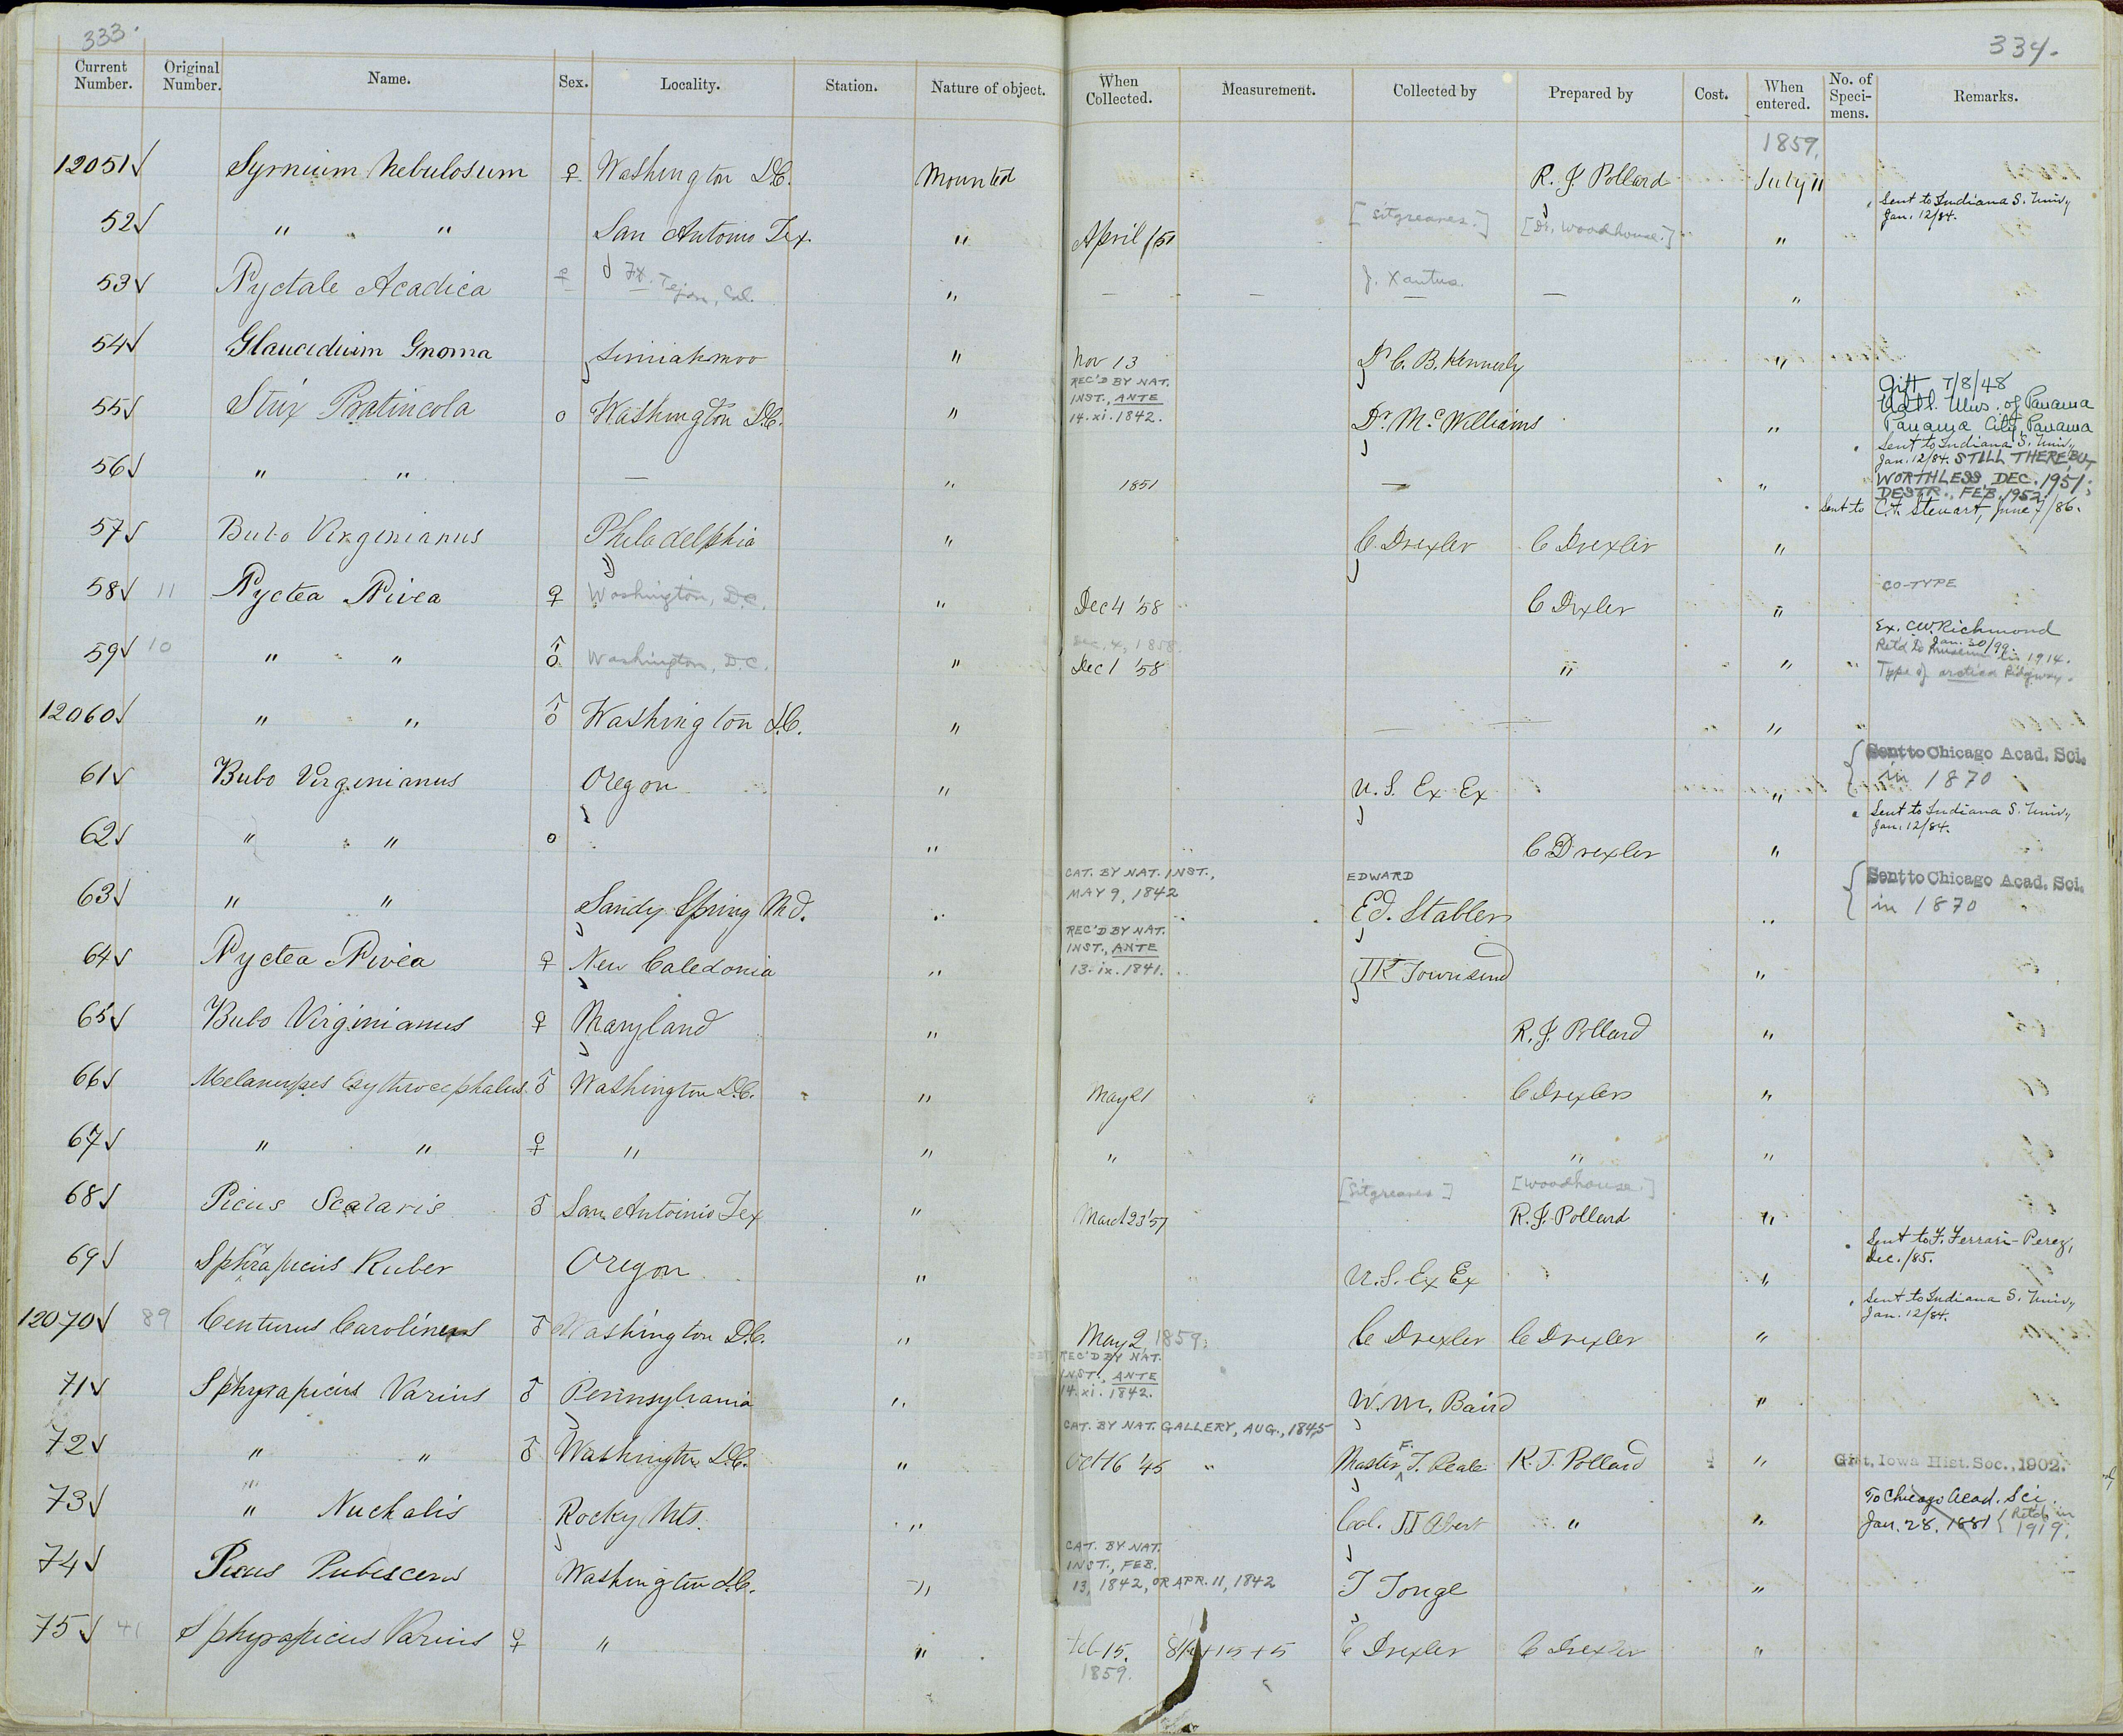 333.
334.
Current Number. Original Number. Name. Sex. Locality. Station. Nature of object. When Collected. Measurement. Collected by Prepared by Cost. When entered. No. of Speci-mens. Remarks.
1859.
12051 √ Syrnium Nebulosum ♀ Washington D.C. Mounted R. J. Pollard July 11
Sent to Indiana S. Univ,
Jan. 12/84.
52 √ " " San Antonio Tex. " April /51 [Sitgreaves.] [Dr. Woodhouse.] "
53 √ Nyctale Acadica ♀ Ft. Tejon, Cal. " — — J. Xantus. — "
54 √ Glaucidium Gnoma Simiahmoo " Nov 13 Dr C. B. Kennerly "
REC'D BY NAT.
INST., ANTE
14.xi.1842.
Gift 7/8/48
Natl. Mus. of Panama
Panama City, Panama
55 √ Strix Pratincola o Washington D.C. " Dr. Mc Williams "
Sent to Indiana S. Univ,
Jan. 12/84. STILL THERE, BUT
WORTHLESS DEC. 1951;
DESTR., FEB. 1952.
56 √ " " — " 1851 — "
Sent to C. A. Steuart, June 7/86.
57 √ Bubo Virginianus Philadelphia " C Drexler C Drexler "
58 √ 11 Nyctea Nivea ♀ Washington, D.C. " Dec 4 '58 C Drxler " CO-TYPE
Ex. C.W. Richmond
Jan. 30/99.
Ret'd to Museum in 1914.
Type of arctica Ridgway.
Dec. 4, 1858.
59 √ 10 " " ♂ Washington, D.C. " Dec 1 '58 " "
12060 √ " " ♂ Washington D.C. " — — "
Sent to Chicago Acad. Sci.
in 1870
61 √ Bubo Virginianus Oregon " U.S. Ex Ex "
Sent to Indiana S. Univ,
Jan. 12/84.
62 √ " " o " C Drexler "
CAT. BY NAT. INST.,
MAY 9, 1842
EDWARD
Sent to Chicago Acad. Sci.
in 1870
63 √ " " Sandy Spring Md. " Ed. Stabler "
REC'D BY NAT.
INST., ANTE
13.ix.1841.
64 √ Nyctea Nivea ♀ New Caledonia " J K Townsend "
65 √ Bubo Virginianus ♀ Maryland " R. J. Pollard "
66 √ Melanerpes Erythrocephalus ♂ Washington D.C. " May 21 C Drexler "
67 √ " " ♀ " " " " "
[Sitgreaves] [Woodhouse.]
68 √ Picus Scalaris ♂ San Antoinio Tex " March 23 '51 R. J. Pollard "
Sent to F. Ferrari-Perez,
Dec. /85.
69 √ Sphyrapicus Ruber Oregon " U.S. Ex Ex "
Sent to Indiana S. Univ,
Jan. 12/84.
12070 √ 89 Centurus Carolinens ♂ Washington D.C. " May 2, 1859. C Drexler C Drexler "
REC'D BY NAT.
INST., ANTE
14.xi.1842.
71 √ Sphyrapicus Varius ♂ Pennsylvania " W. M. Baird "
CAT. BY NAT. GALLERY, AUG., 1845
72 √ " " ♂ Washington D.C. " Oct 16 '45 " Master F. T. Peale R. J. Pollard "
Gift, Iowa Hist. Soc., 1902.
73 √ " Nuchalis Rocky Mts. " Col. J J Abert " "
To Chicago Acad. Sci.
Jan. 28, 1881 { Ret'd in 1919.
CAT. BY NAT.
INST., FEB.
13, 1842, OR APR. 11, 1842
74 √ Picus Pubescens Washington D.C. " T Tonge "
75 √ 41 Sphyrapicus Varius ♀ " " Feb 15. C Drexler C Drexler "
1859.